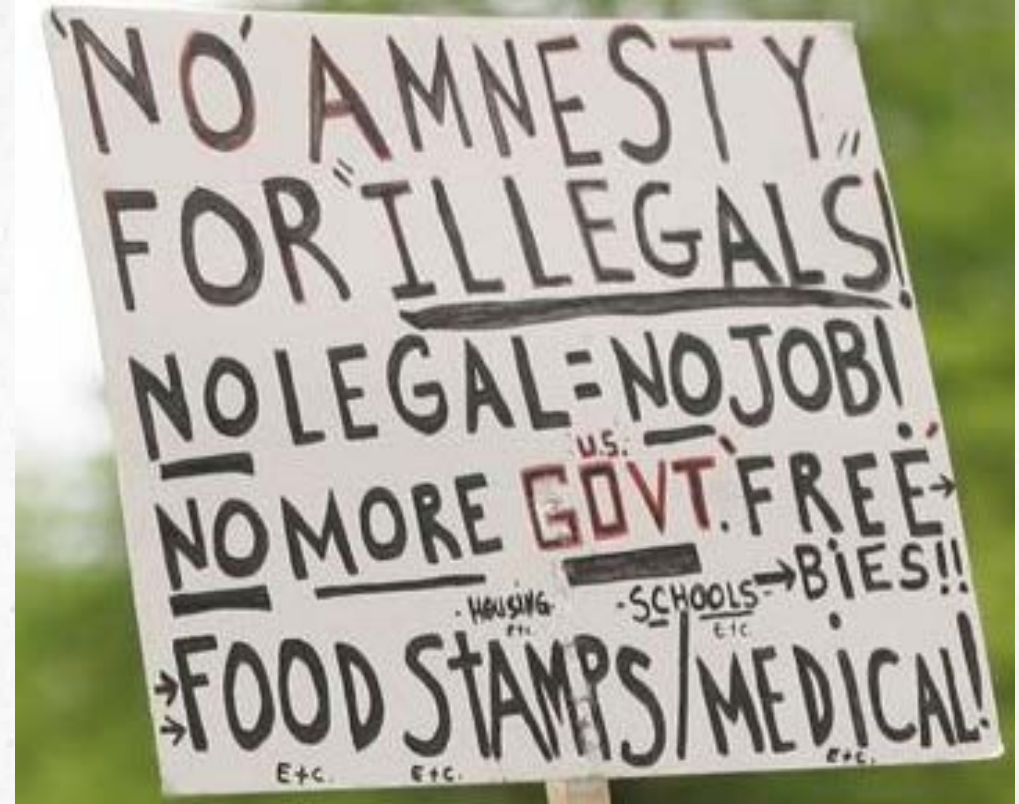 'NO' AMNESTY
FOR "ILLEGALS"!
NO LEGAL = NO JOB!
U.S.
NO MORE GOVT. 'FREE'→
→BiES!!
- HOUSING - - SCHOOLS -
Etc. Etc.
→FOOD StAMPS/MEDiCAL!
→
Etc. Etc. Etc.